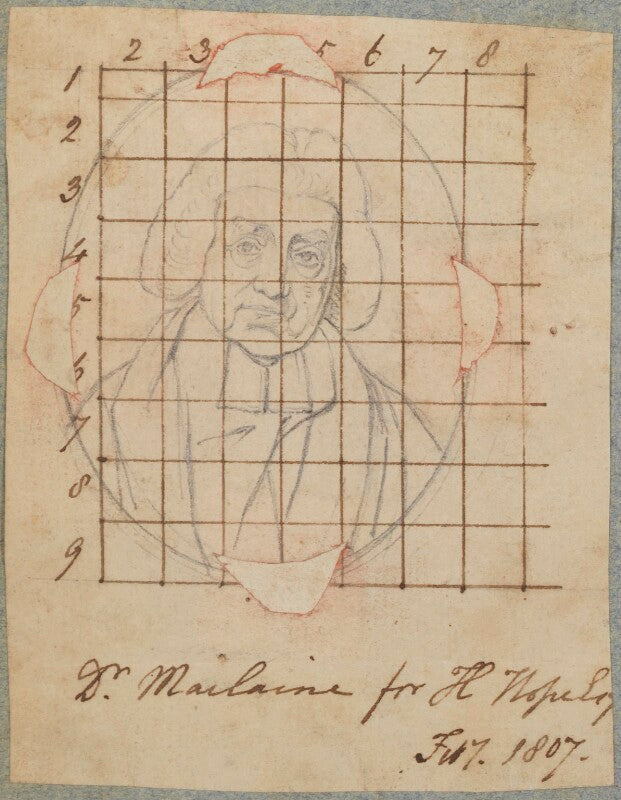 2 3 5 6 7 8
1
2
3
4
5
6
7
8
9
Dr. Maclaine for H Hope Esq
1807.